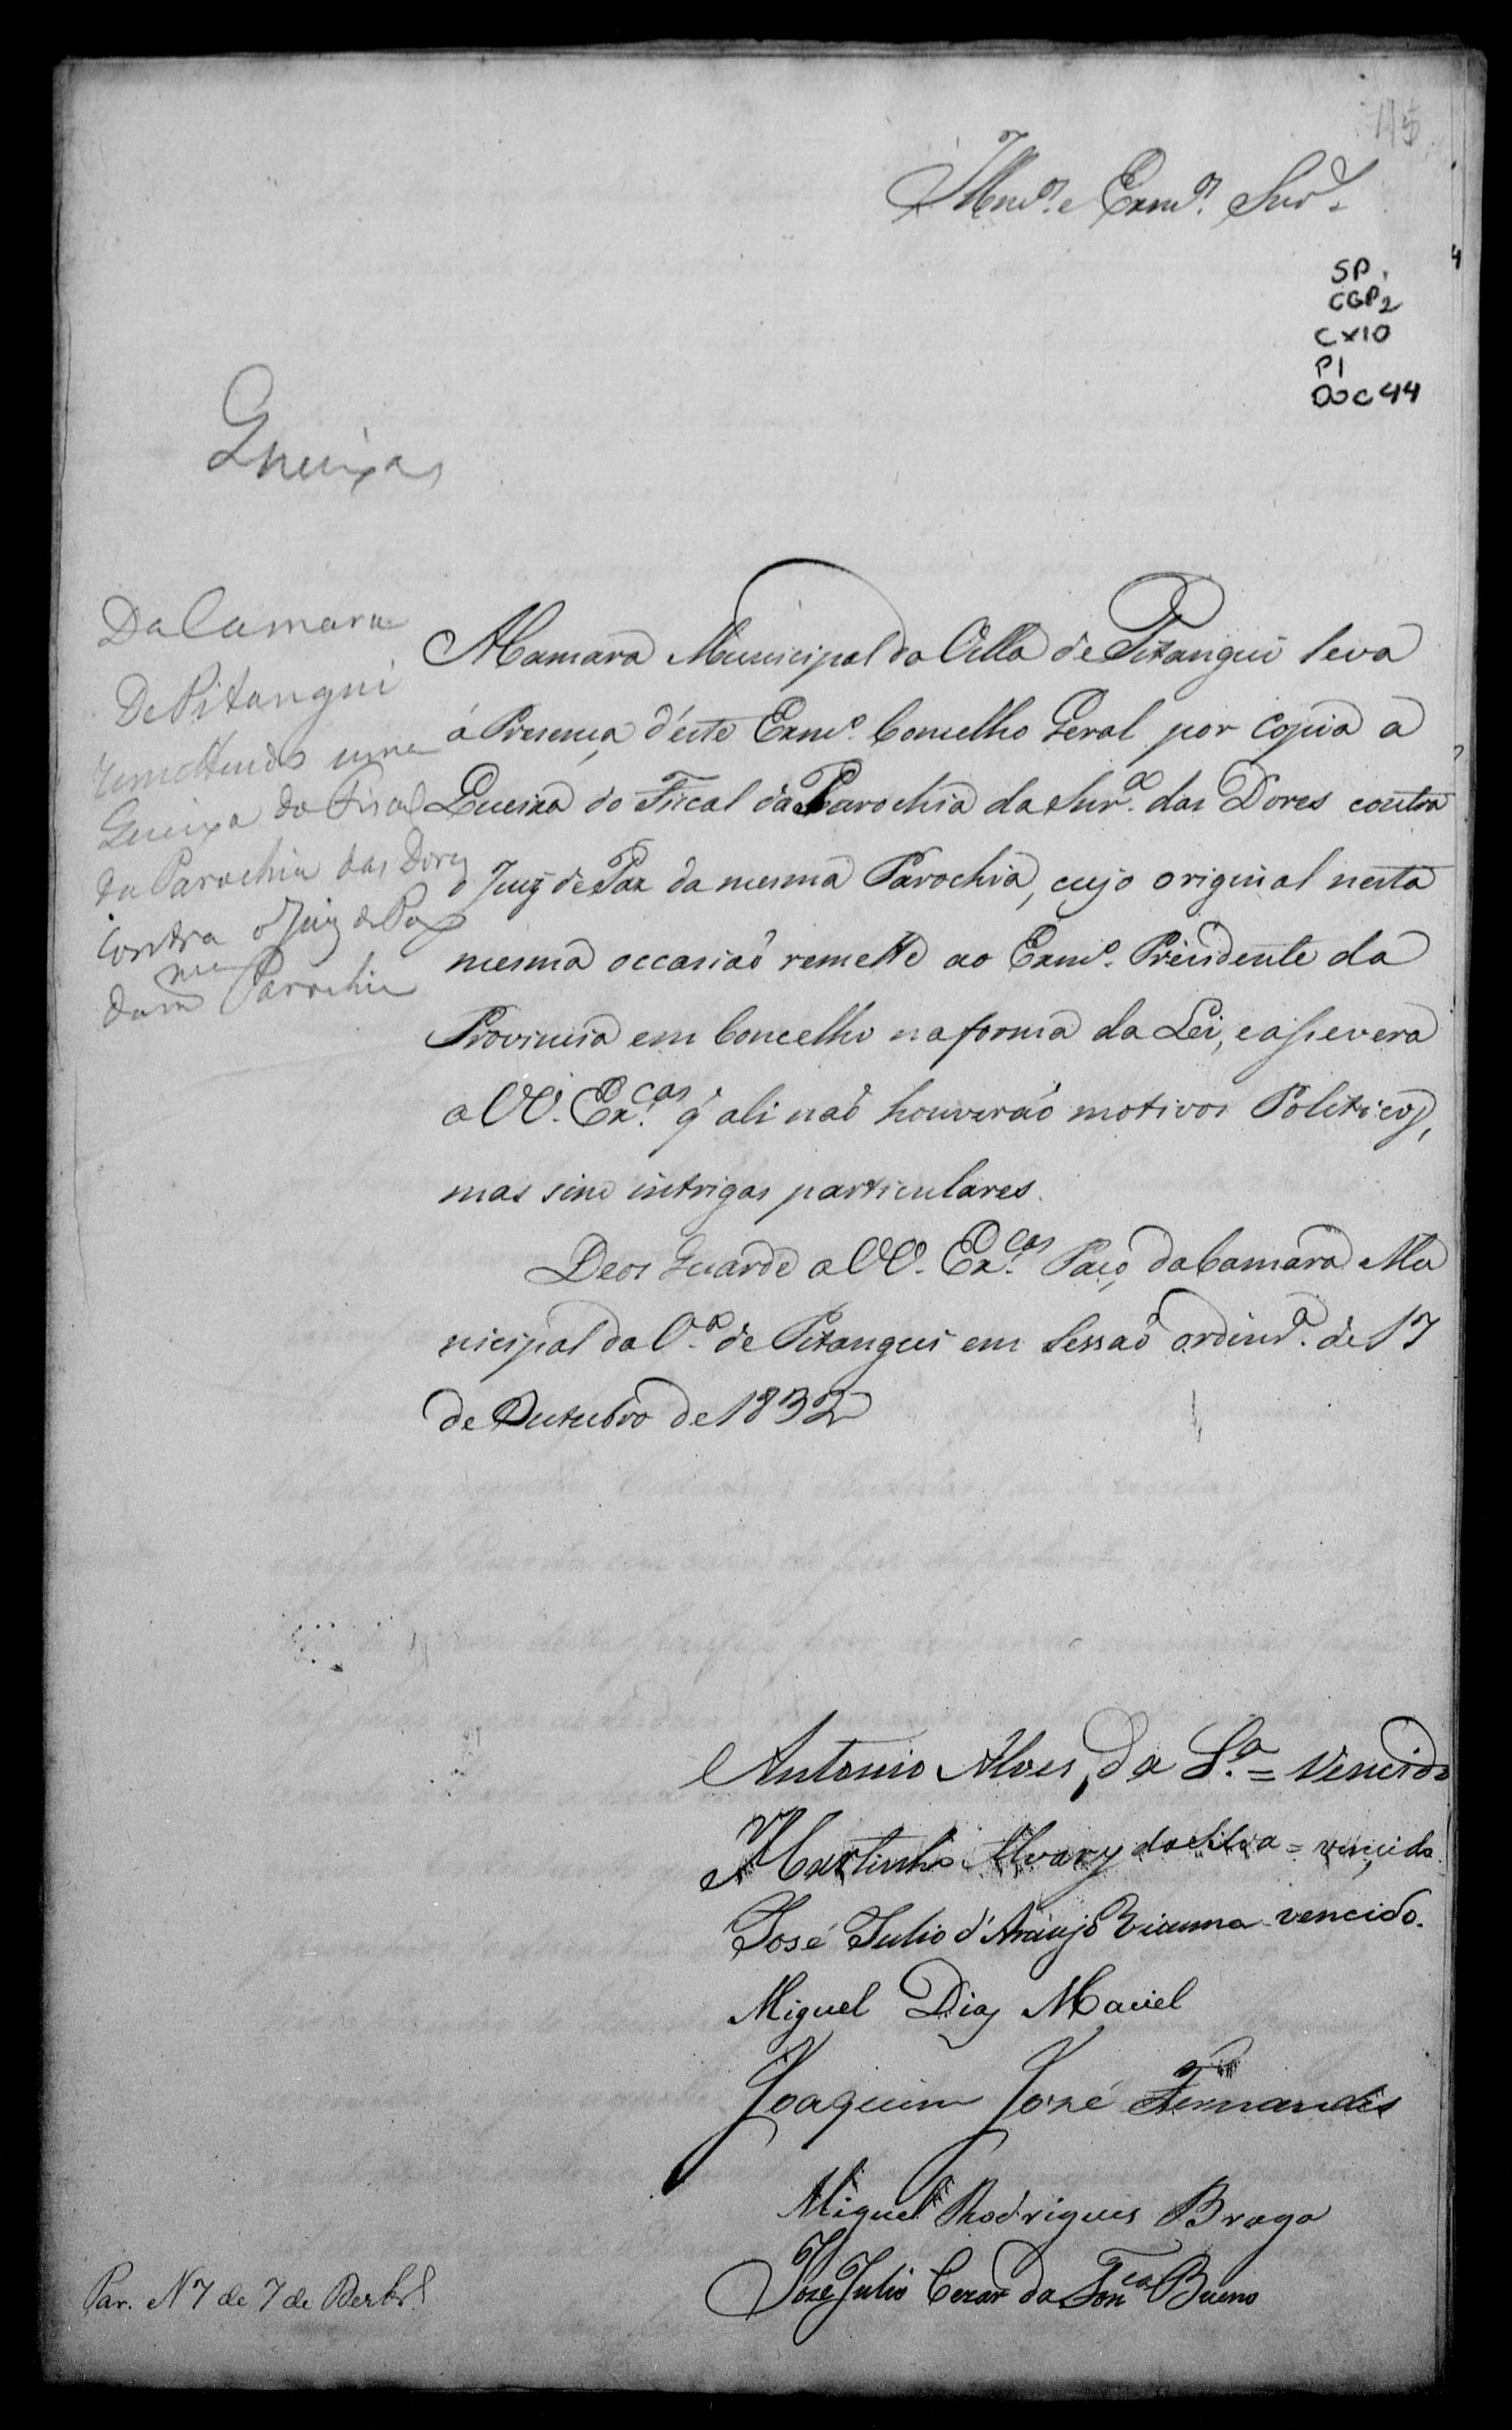 115
Illmos. e Exmos. Snres.
SP.
CGP2
CX10
P1
DOC 44
Queixas
Da Camara
De Pitangui
remettendo uma
Queixa do Fiscal
da Parochia das Dores
contra o Juiz de Paz
da mma Parochia
A Camara Municipal da Villa de Pitangui leva
á Presença d'este Exmo. Conselho Geral por copia a
Queixa do Fiscal da Parochia da Snra. das Dores contra
o Juiz de Paz da mesma Parochia, cujo original nesta
mesma occasiaõ remette ao Exmo. Prezidente da
Provincia em Concelho na forma da Lei, e assevera
a VV. Excas. q̃ ali naõ houveraõ motivos Politicos,
mas sino intrigas particulares.
Deos Guarde a VV. Excas. Paço da Camara Mu
nicipal da Va. de Pitangui em Sessaõ ordinra. de 17
de Outubro de 1832
Antonio Alves da Sa. = Vencido
Martinho Alvares da Silva = vencido.
José Julio d'Araujo Vianna vencido.
Miguel Dias Maciel
Joaquim José Fernandes
Miguel Rodrigues Braga
José Julio Cezar da Fonca Bueno
Par. N 7 de 7 de Dezbr.